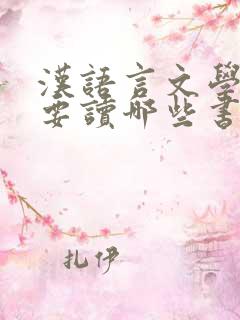 漢語言文學
要讀哪些書
扎伊